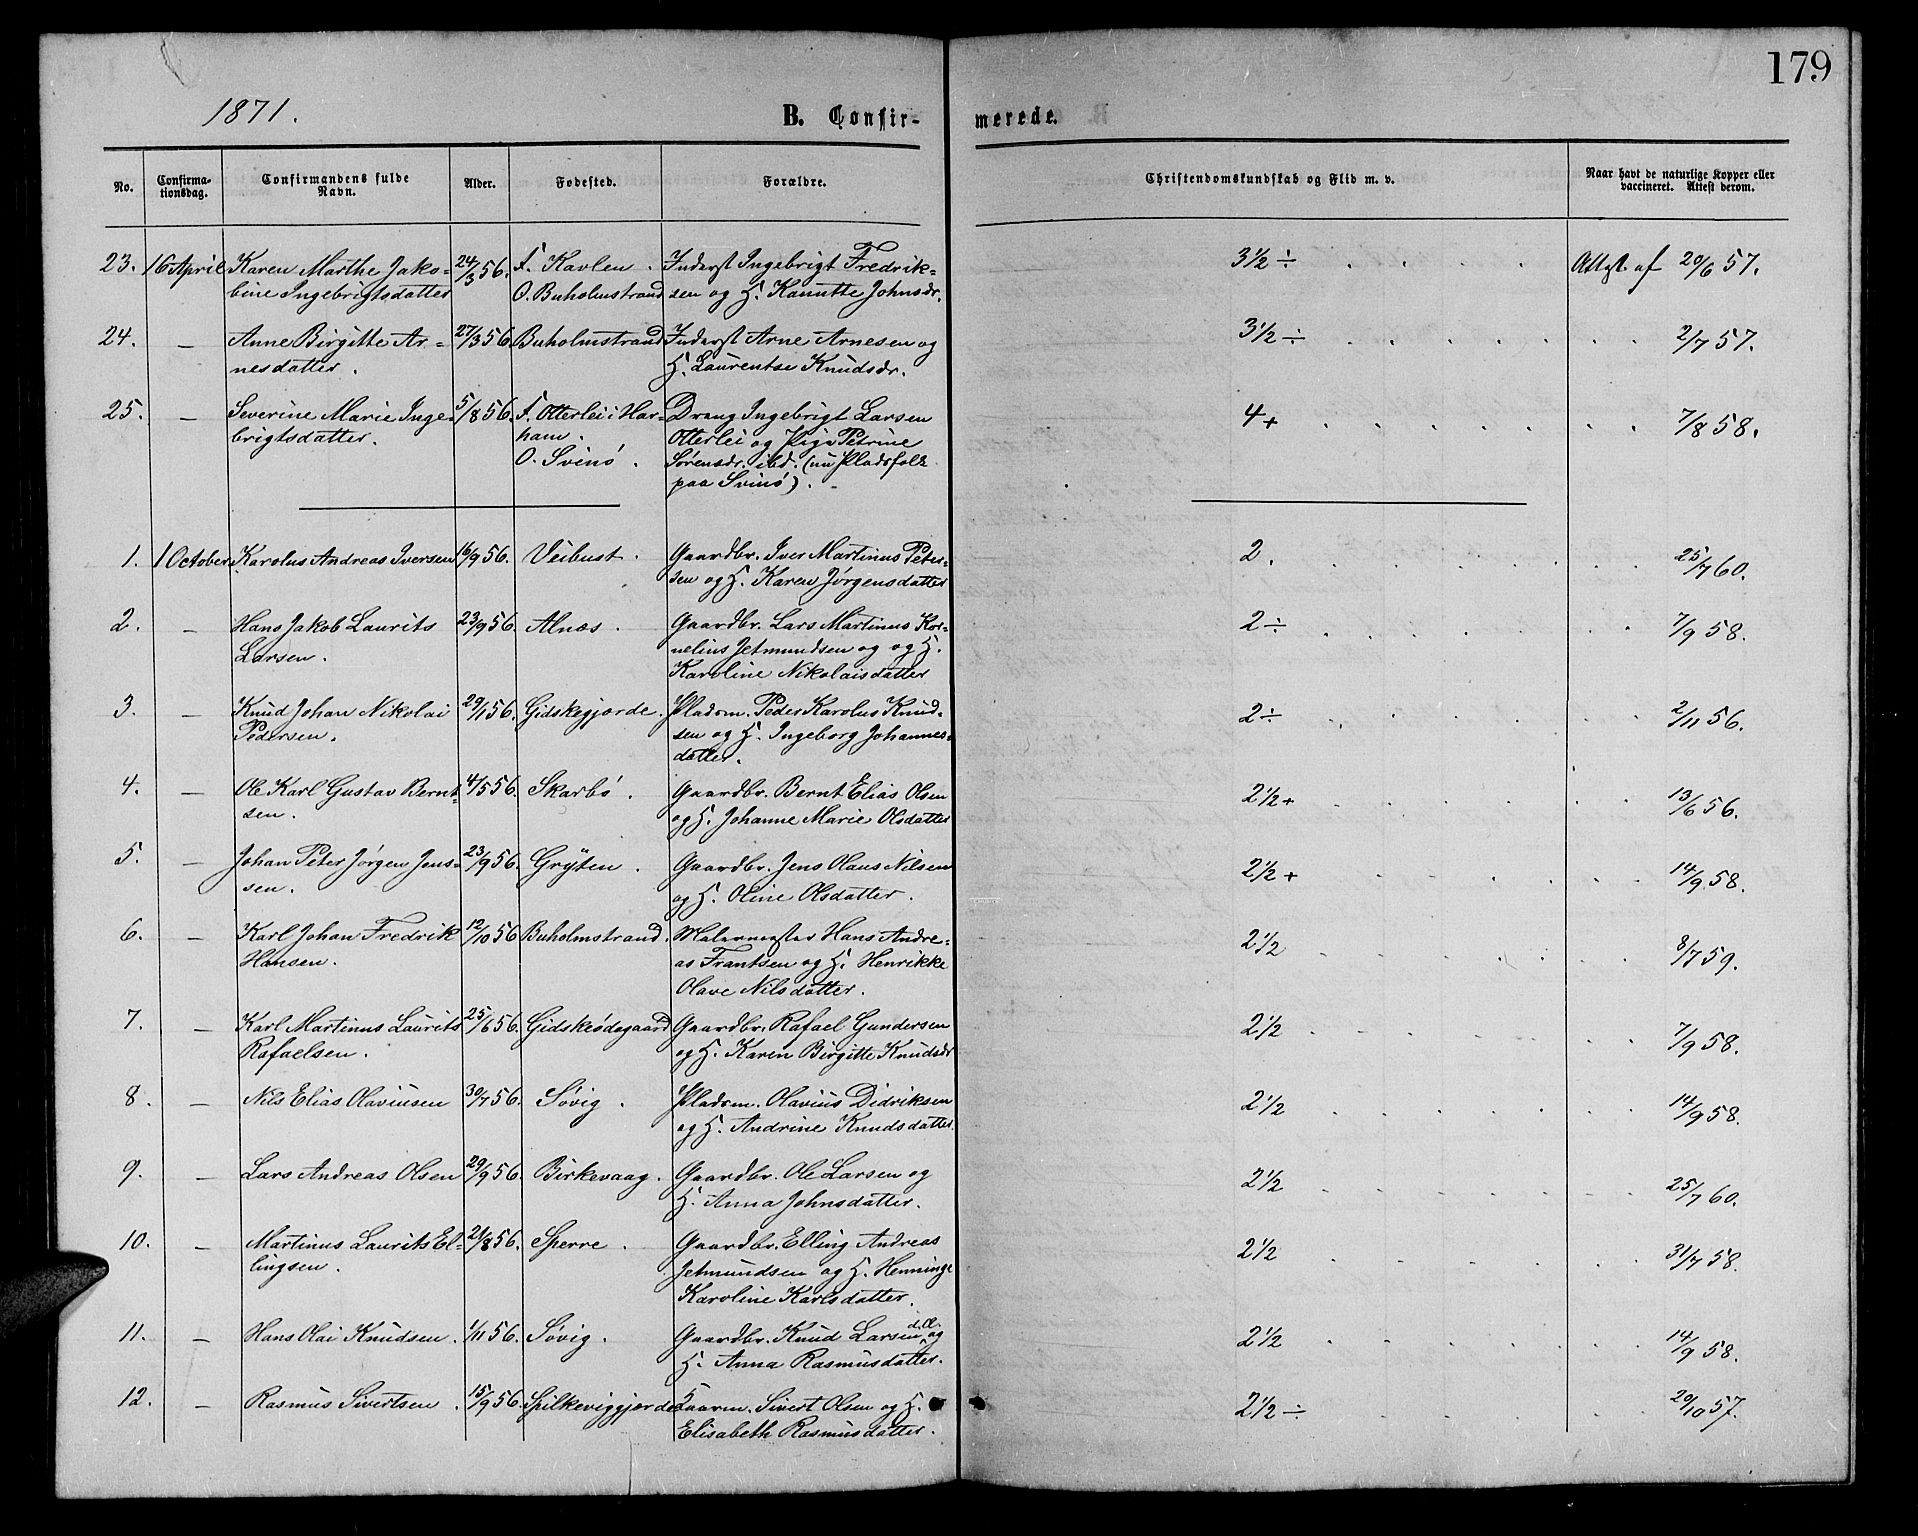 179
1871.
B. Confirmerede.
No. Confirmationsdag. Confirmandens fulde Navn. Alder. Fødested. Forældre. Christendomskundskab og Flid m. v. Naar havt de naturlige Kopper eller vaccineret. Attest derom.
23. 16 April Karen Marthe Jako- 24/3 56. F. Kavlen. Inderst Ingebrigt Fredrik- 3½ ÷ Attest af 20/6 57.
bine Ingebrigtsdatter O. Buholmstrand sen og H. Kanutte Johnsdr.
24. — Anne Birgitte Ar- 27/3 56. Buholmstrand Inderst Arne Arnesen og 3½ ÷ 2/7 57.
nesdatter. H. Laurentse Knudsdr.
25. — Severine Marie Inge- 5/8 56. F. Otterlei i Har- Dreng Ingebrigt Larsen 4+ 7/8 58.
brigtsdatter. ham. Otterlei og Pige Petrine
O. Svinö. Sörensdr. ibd. (nu Pladsfolk
paa Svinö).
1. 1 October Karolus Andreas Iversen 16/9 56. Veibust. Gaardbr. Iver Martinus Peter- 2. 25/7 60.
sen og H. Karen Jörgensdatter
2. — Hans Jakob Laurits 23/9 56. Alnæs. Gaardbr. Lars Martinus Kor- 2 ÷ 7/9 58.
Larsen. nelius Jetmundsen og og H.
Karoline Nikolaisdatter
3. — Knud Johan Nikolai 29/1 56. Gidskegjerde. Pladsm. Peder Karolus Knud- 2 ÷ 2/11 56.
Pedersen. sen og H. Ingeborg Johannes-
datter.
4. — Ole Karl Gustav Bernt- 4/5 56. Skarbö. Gaardbr. Bernt Elias Olsen 2½ + 13/6 56.
sen. og H. Johanne Marie Olsdatter
5. — Johan Peter Jörgen Jens- 23/9 56. Gryten. Gaardbr. Jens Olaus Nilsen 2½ + 14/9 58.
sen. og H. Oline Olsdatter.
6. — Karl Johan Fredrik 12/10 56 Buholmstrand. Malermester Hans Andre- 2½ 8/7 59.
Hansen. as Frantsen og H. Henrikke
Olave Nilsdatter.
7. — Karl Martinus Laurits 25/6 56. Gidskeödegaard Gaardbr. Rafael Gundersen 2½ 7/9 58.
Rafaelsen. og H. Karen Birgitte Knudsdr
8. — Nils Elias Olaviusen 30/7 56. Sövig. Pladsm. Olavius Didriksen 2½ 14/9 58.
og H. Andrine Knudsdatter.
9. — Lars Andreas Olsen 29/9 56. Birkevaag. Gaardbr. Ole Larsen og 2½ 25/7 60.
H. Anna Johnsdatter.
10. — Martinus Laurits El- 21/8 56. Sperre. Gaardbr. Elling Andreas 2½ 31/7 58.
lingsen. Jetmundsen og H. Henninge
Karoline Karlsdatter.
11. — Hans Olai Knudsen. 1/11 56. Sövig. Gaardbr. Knud Larsen d.æ. og 2½ 14/9 58.
H. Anna Rasmusdatter.
12. — Rasmus Sivertsen. 15/9 56. Spilkeviggjerde Sivert Olsen og H. 2½ ÷ 20/10 57.
Elisabeth Rasmusdatter.